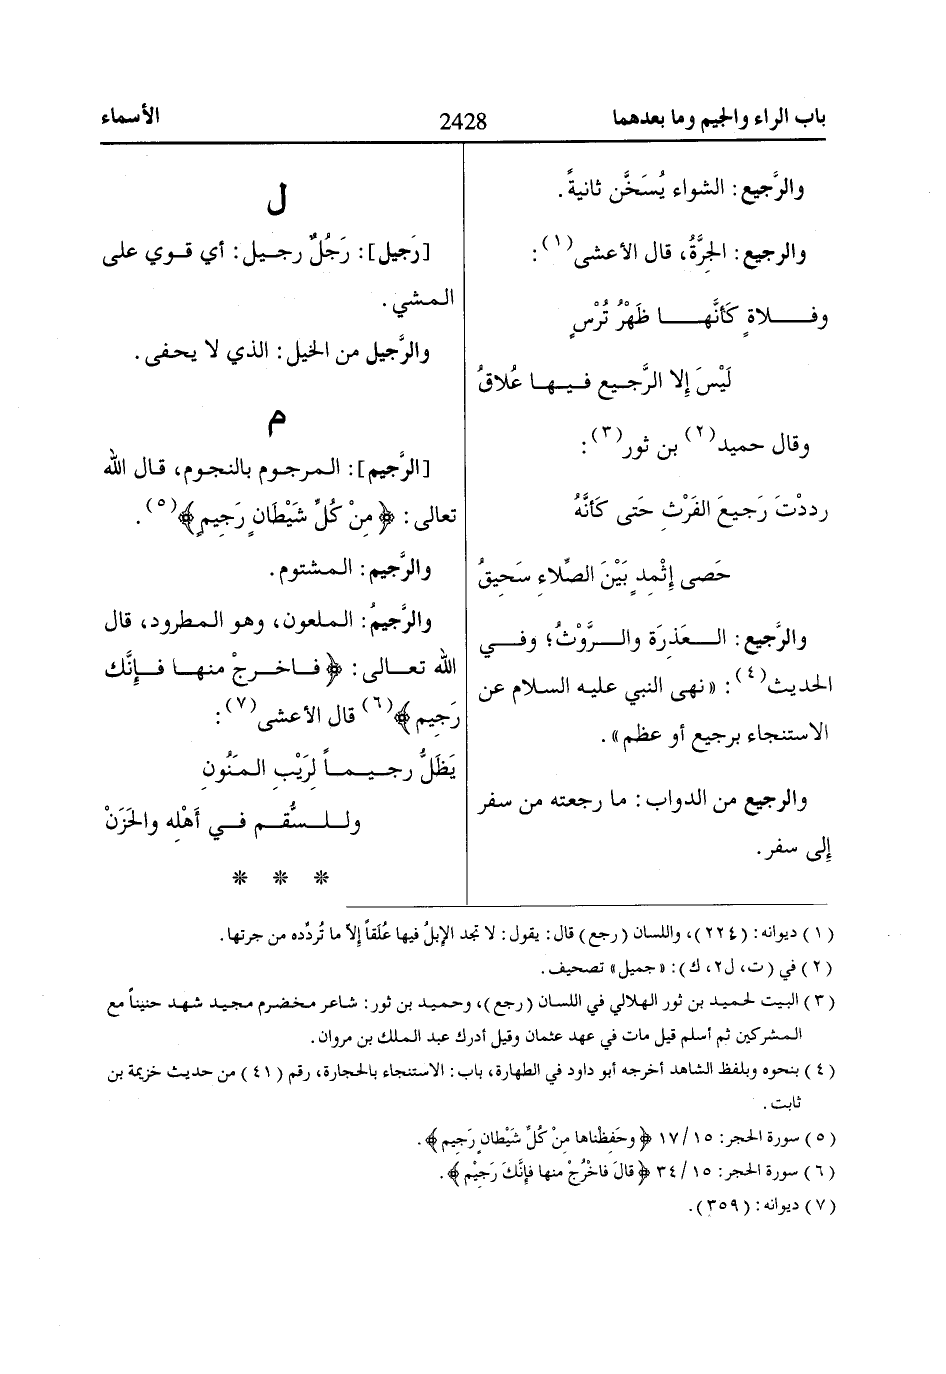 باب الراء والجيم وما بعدهما 2428 الأسماء
والرَّجيع: الشواء يُسَخَّن ثانيةً.
والرجيع: الجِرَّةُ، قال الأعشى(١):
وفـــلاةٍ كَأنَّهــا ظَهْرُ تُرْسٍ
لَيْسَ إلا الرَّجـيع فـيـهـا عُلاقُ
وقال حميد(٢) بن ثور(٣):
رددْتَ رَجيعَ الفَرْثِ حَتى كَأنَّهُ
حَصى إثْمدٍ بَيْنَ الصِّلاءِ سَحيقُ
والرَّجيع: الـعَذرَة والـرَّوْثُ؛ وفـي
الحديث(٤): «نهى النبي عليه السلام عن
الاستنجاء برجيع أو عظم».
والرجيع من الدواب: ما رجعته من سفر
إلى سفر.
ل
[رَجيل]: رَجُلٌ رجـيل: أي قـوي على
المشي.
والرَّجيل من الخيل: الذي لا يحفى.
م
[الرَّجيم]: المرجـوم بالنجـوم، قـال الله
تعالى: ﴿مِنْ كُلِّ شَيْطَانٍ رَجيمٍ﴾(٥).
والرَّجيم: المشتوم.
والرَّجيمُ: الملعون، وهو المطرود، قال
الله تعـالى: ﴿فـاخـرجْ منهـا فـإنَّك
رَجيم﴾(٦) قال الأعشى(٧):
يَظَلُّ رجـيـمـاً لِرَيْبِ المَنُونِ
ولـلـسُّقـم فـي أَهْلِه والحَزَنْ
* * *
(١) ديوانه: (٢٢٤)، واللسان (رجع) قال: يقول: لا تجد الإبلُ فيها عُلَقاً إلاّ ما تُردِّده من جرتها.
(٢) في (ت، ل٢، ك): «جميل» تصحيف.
(٣) البيت لحميد بن ثور الهلالي في اللسان (رجع)، وحميد بن ثور: شاعر مخضرم مجيد شهد حنيناً مع
المشركين ثم أسلم قيل مات في عهد عثمان وقيل أدرك عبد الملك بن مروان.
(٤) بنحوه وبلفظ الشاهد أخرجه أبو داود في الطهارة، باب: الاستنجاء بالحجارة، رقم (٤١) من حديث خزيمة بن
ثابت.
(٥) سورة الحجر: ١٥/ ١٧ ﴿وحَفِظْناها مِنْ كُلِّ شَيْطانٍ رَجيم﴾.
(٦) سورة الحجر: ١٥/ ٣٤ ﴿قالَ فاخْرُجْ منها فإنَّكَ رَجيْم﴾.
(٧) ديوانه: (٣٥٩).